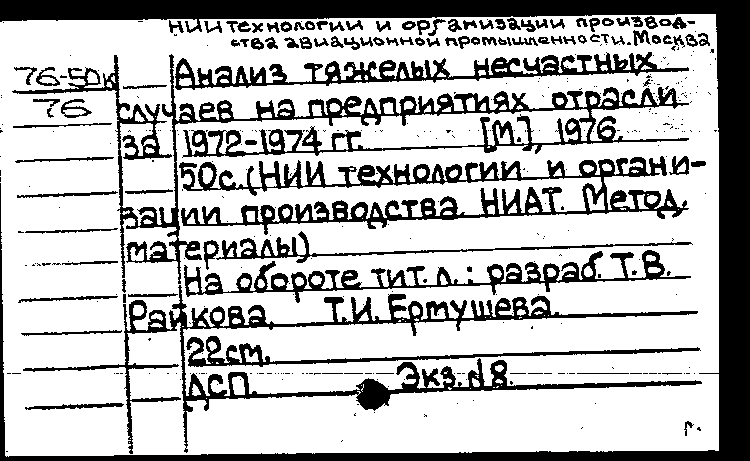 НИИ технологии и организации производ-
ства авиационной промышленности. Москва
76-50к Анализ тяжелых несчастных
76 случаев на предприятиях отрасли
за 1972-1974 гг. [М.], 1976.
50с. (НИИ технологии и органи-
зации производства. НИАТ. Метод.
материалы).
На обороте тит. л.: разраб. Т.В.
Райкова, Т.И. Ертушева.
22см.
ДСП. Экз. №8.
г.